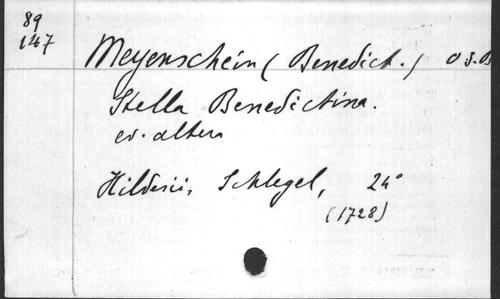 89
147
Meyenschein (Benedict.) O.S.B
Stella Benedictina.
ed. altera
Hildesii, Schlegel, 24°
(1728)